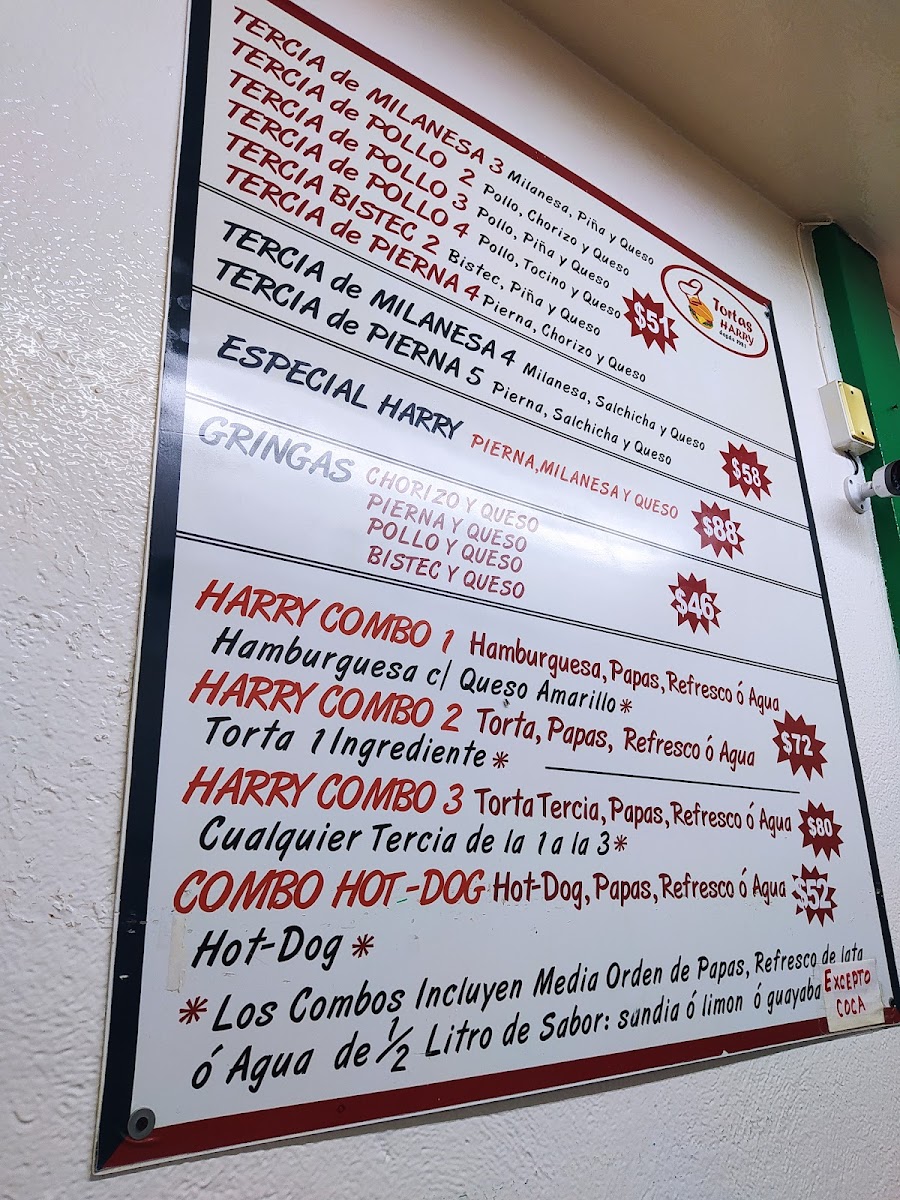 TERCIA de MILANESA 3 Milanesa, Piña y Queso
TERCIA de POLLO 2 Pollo, Chorizo y Queso
TERCIA de POLLO 3 Pollo, Piña y Queso
TERCIA de POLLO 4 Pollo, Tocino y Queso
TERCIA BISTEC 2 Bistec, Piña y Queso
TERCIA de PIERNA 4 Pierna, Chorizo y Queso
$51
Tortas
HARRY
desde
TERCIA de MILANESA 4 Milanesa, Salchicha y Queso
TERCIA de PIERNA 5 Pierna, Salchicha y Queso
$58
ESPECIAL HARRY PIERNA, MILANESA Y QUESO
$88
GRINGAS CHORIZO Y QUESO
PIERNA Y QUESO
POLLO Y QUESO
BISTEC Y QUESO
$46
HARRY COMBO 1 Hamburguesa, Papas, Refresco ó Agua
Hamburguesa c/ Queso Amarillo *
HARRY COMBO 2 Torta, Papas, Refresco ó Agua
$72
Torta 1 Ingrediente *
HARRY COMBO 3 Torta Tercia, Papas, Refresco ó Agua $80
Cualquier Tercia de la 1 a la 3 *
COMBO HOT-DOG Hot-Dog, Papas, Refresco ó Agua $52
Hot-Dog *
* Los Combos Incluyen Media Orden de Papas, Refresco de lata
ó Agua de 1/2 Litro de Sabor: sandia ó limon ó guayaba
EXCEPTO
COCA